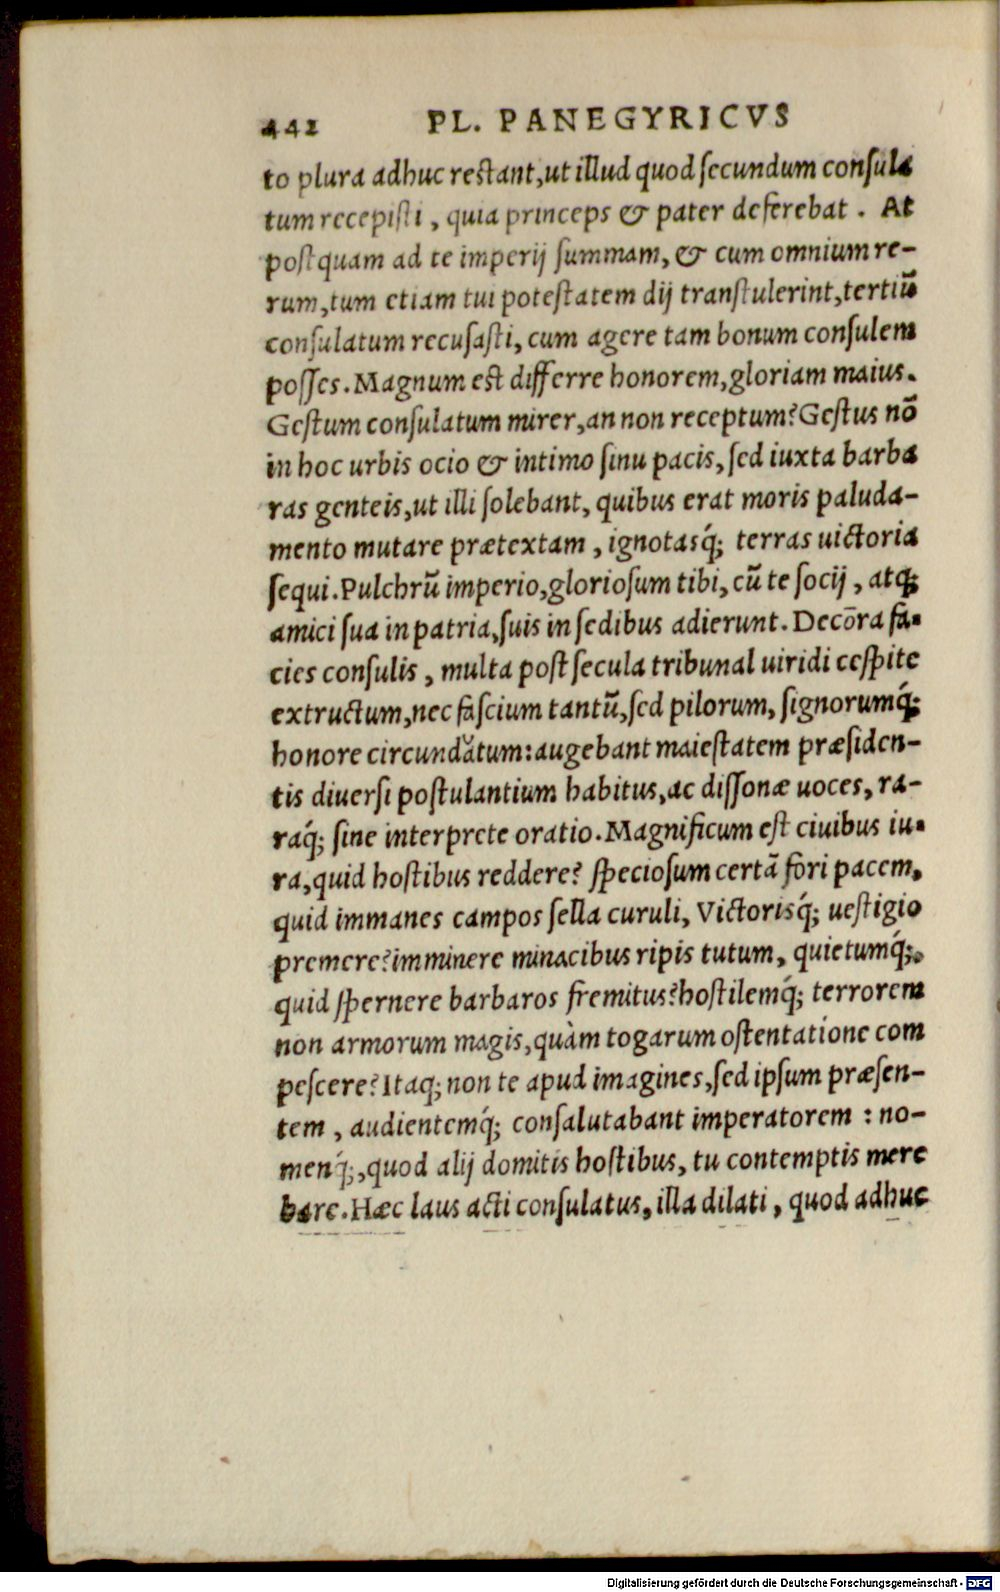 442 PL. PANEGYRICVS
to plura adhuc restant, ut illud quod secundum consula
tum recepisti, quia princeps & pater deferebat. At
postquam ad te imperij summam, & cum omnium re-
rum, tum etiam tui potestatem dij transtulerint, tertiũ
consulatum recusasti, cum agere tam bonum consulem
posses. Magnum est differre honorem, gloriam maius.
Gestum consulatum mirer, an non receptum? Gestus nõ
in hoc urbis ocio & intimo sinu pacis, sed iuxta barba
ras genteis, ut illi solebant, quibus erat moris paluda-
mento mutare prætextam, ignotasq́; terras uictoria
sequi. Pulchrũ imperio, gloriosum tibi, cũ te socij, atq;
amici sua in patria, suis in sedibus adierunt. Decōra fa-
cies consulis, multa post secula tribunal uiridi cespite
extructum, nec fascium tantũ, sed pilorum, signorumq́;
honore circundatum: augebant maiestatem præsiden-
tis diuersi postulantium habitus, ac dissonæ uoces, ra-
raq́; sine interprete oratio. Magnificum est ciuibus iu-
ra, quid hostibus reddere? speciosum certã fori pacem,
quid immanes campos sella curuli, Victorisq́; uestigio
premere? imminere minacibus ripis tutum, quietumq́;.
quid spernere barbaros fremitus? hostilemq́; terrorem
non armorum magis, quàm togarum ostentatione com
pescere? Itaq; non te apud imagines, sed ipsum præsen-
tem, audientemq́; consalutabant imperatorem: no-
menq́;, quod alij domitis hostibus, tu contemptis mere
bare. Hæc laus acti consulatus, illa dilati, quod adhuc
Digitalisierung gefördert durch die Deutsche Forschungsgemeinschaft - DFG